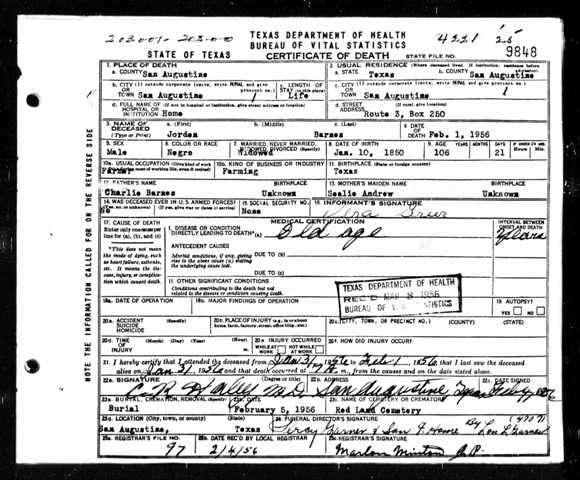 203001-203-0-0
TEXAS DEPARTMENT OF HEALTH
4221 25
BUREAU OF VITAL STATISTICS
9848
STATE OF TEXAS
CERTIFICATE OF DEATH
STATE FILE NO.
1. PLACE OF DEATH
2. USUAL RESIDENCE (Where deceased lived. If institution: residence before admission)
a. COUNTY San Augustine
a. STATE Texas
b. COUNTY San Augustine
b. CITY (If outside corporate limits, write RURAL and give precinct no.) OR TOWN San Augustine
c. LENGTH OF STAY (in this place) Life
c. CITY (If outside corporate limits, write RURAL and give precinct no.) OR TOWN San Augustine
d. FULL NAME OF (If not in hospital or institution, give street address or location) HOSPITAL OR INSTITUTION Home
d. STREET ADDRESS (If rural, give location) Route 3, Box 250
3. NAME OF DECEASED (Type or Print)
a. (First) Jorden
b. (Middle)
c. (Last) Barnes
4. DATE OF DEATH Feb. 1, 1956
5. SEX Male
6. COLOR OR RACE Negro
7. MARRIED, NEVER MARRIED, WIDOWED, DIVORCED (Specify) Widowed
8. DATE OF BIRTH Jan. 10, 1850
9. AGE YEARS 106 MONTHS DAYS 21 Hours Min.
10a. USUAL OCCUPATION (Give kind of work done during most of working life, even if retired) Farmer
10b. KIND OF BUSINESS OR INDUSTRY Farming
11. BIRTHPLACE (State or foreign country) Texas
12. FATHER'S NAME Charlie Barnes
BIRTHPLACE Unknown
13. MOTHER'S MAIDEN NAME Sealie Andrew
BIRTHPLACE Unknown
14. WAS DECEASED EVER IN U.S. ARMED FORCES? (Yes, no, or unknown) (If yes, give war or dates of service) No
15. SOCIAL SECURITY NO. None
16. INFORMANT'S SIGNATURE
17. CAUSE OF DEATH
Enter only one cause per line for (a), (b), and (c)
*This does not mean the mode of dying, such as heart failure, asthenia, etc. It means the disease, injury, or complication which caused death.
MEDICAL CERTIFICATION
I. DISEASE OR CONDITION DIRECTLY LEADING TO DEATH* (a) Old age
INTERVAL BETWEEN ONSET AND DEATH Years
ANTECEDENT CAUSES
Morbid conditions, if any, giving rise to the above cause (a) stating the underlying cause last.
DUE TO (b)
DUE TO (c)
II. OTHER SIGNIFICANT CONDITIONS
Conditions contributing to the death but not related to the disease or condition causing death.
TEXAS DEPARTMENT OF HEALTH
REC'D MAR 8 1956
BUREAU OF VITAL STATISTICS
18a. DATE OF OPERATION
18b. MAJOR FINDINGS OF OPERATION
19. AUTOPSY? YES NO
20a. ACCIDENT SUICIDE HOMICIDE (Specify)
20b. PLACE OF INJURY (e.g., in or about home, farm, factory, street, office bldg., etc.)
20c. (CITY, TOWN, OR PRECINCT NO.) (COUNTY) (STATE)
20d. TIME OF INJURY
20e. INJURY OCCURRED WHILE AT WORK NOT WHILE AT WORK
20f. HOW DID INJURY OCCUR?
21. I hereby certify that I attended the deceased from Jan 31 1956 to Feb 1 1956 that I last saw the deceased
alive on Jan 31 1956 and that death occurred at m., from the causes and on the date stated above.
22a. SIGNATURE (Degree or title) Haley M.D.
22b. ADDRESS San Augustine, Texas
22c. DATE SIGNED
23a. BURIAL, CREMATION, REMOVAL (Specify) Burial
23b. DATE February 5, 1956
23c. NAME OF CEMETERY OR CREMATORY Red Land Cemetery
23d. LOCATION (City, town, or county) (State) San Augustine, Texas
24. FUNERAL DIRECTOR'S SIGNATURE Leroy Garner & Son F. Home By Lou L Garner
25a. REGISTRAR'S FILE NO. 97
25b. DATE REC'D BY LOCAL REGISTRAR 2/4/56
25c. REGISTRAR'S SIGNATURE Marlon Minton J.P.
NOTE THE INFORMATION CALLED FOR ON THE REVERSE SIDE